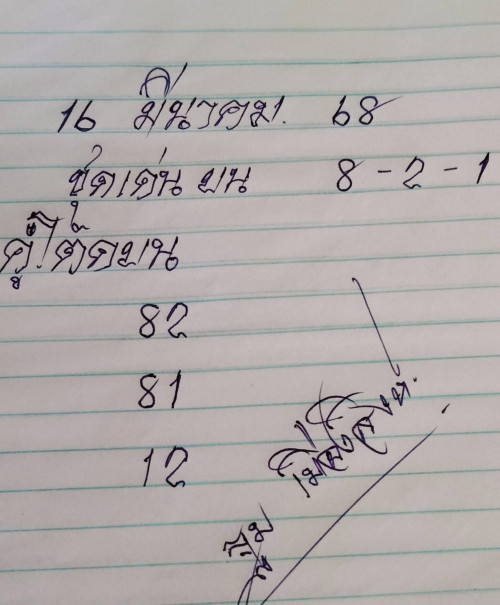 16 มีนาคม. 68
ชุดเด่น บน 8 - 2 - 1
คู่โต๊ดบน
82
81
12